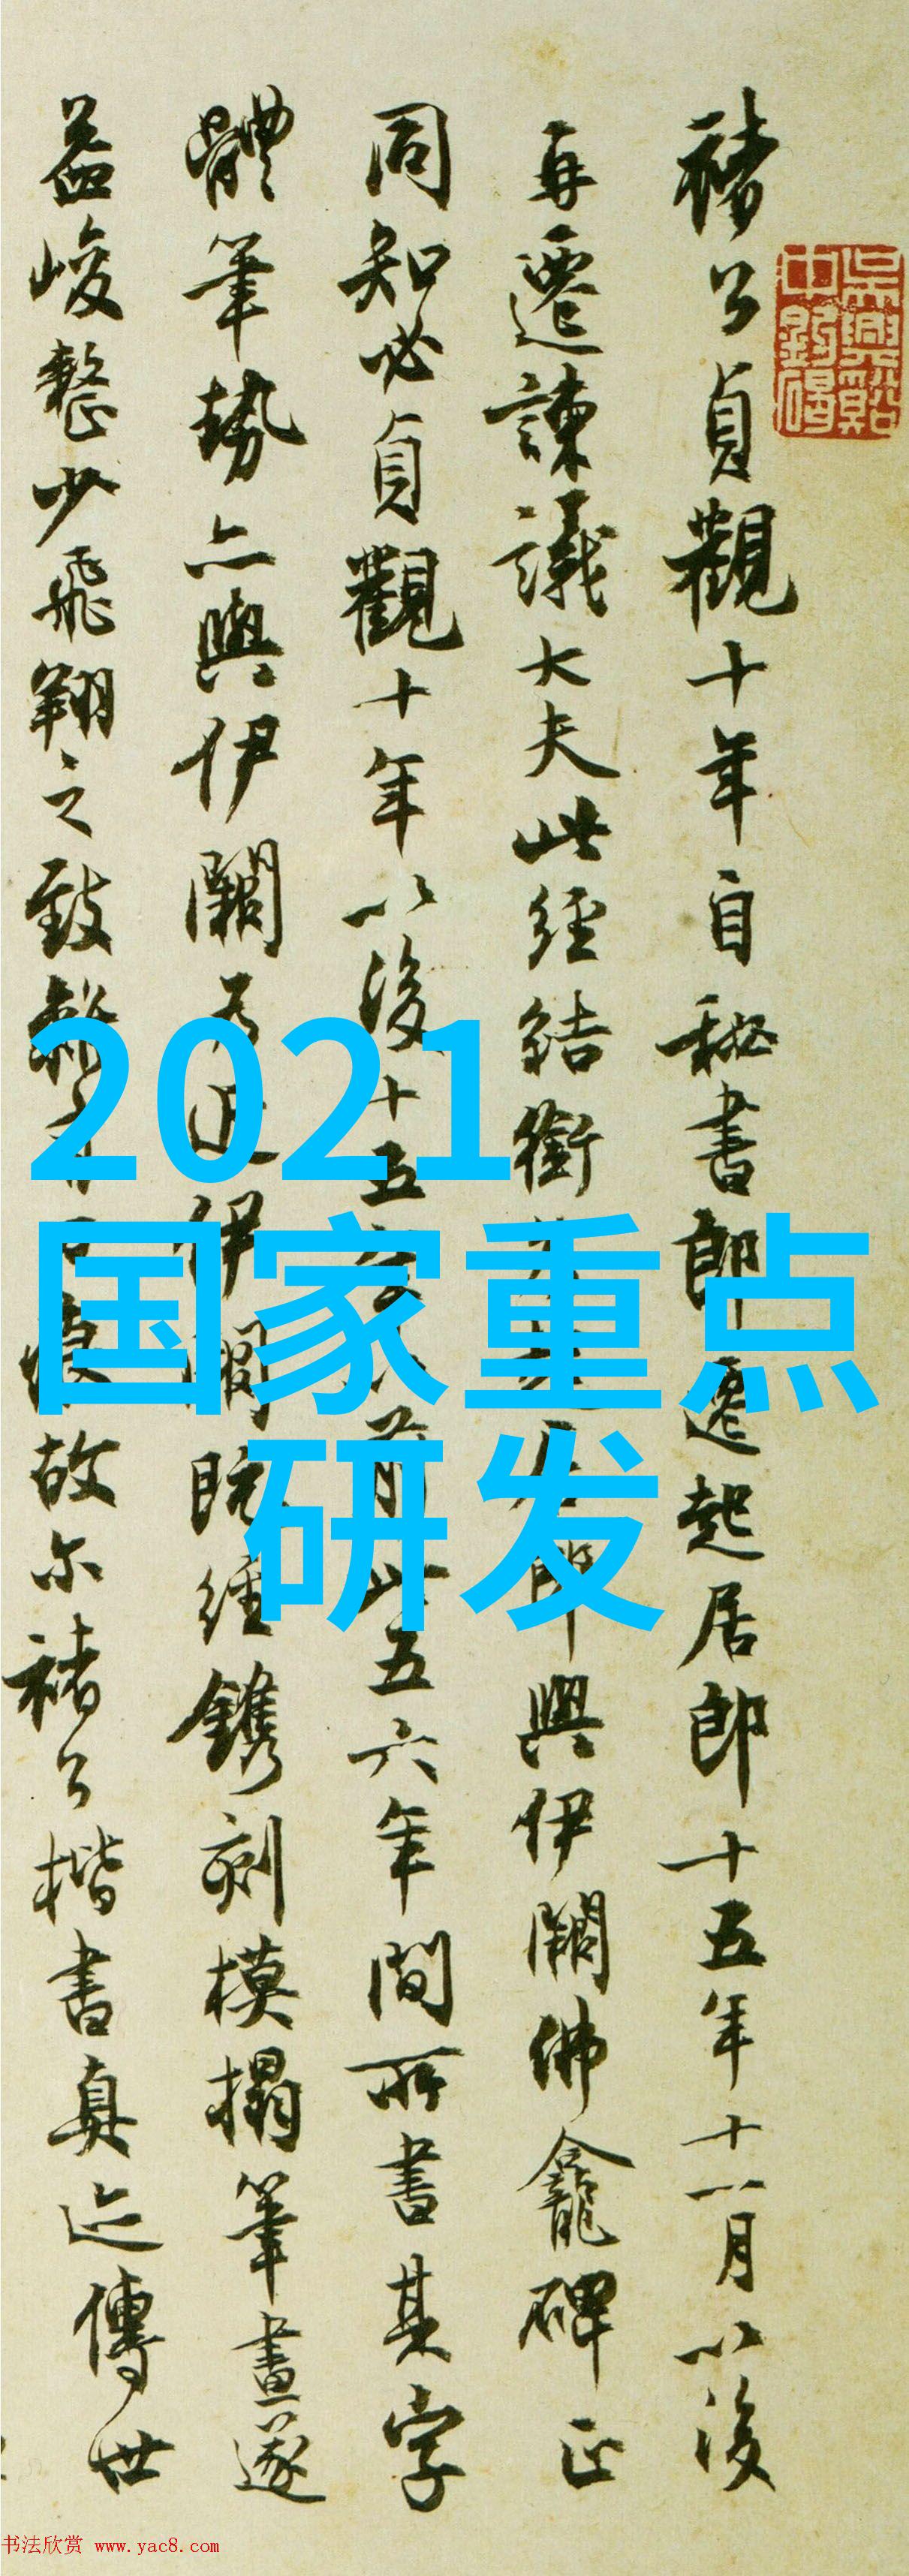 褚公貞觀十年自秘書郎遷起居郎十五年十一月以後
再遷諫議大夫此經結銜起居郎與伊闕佛龕碑正
同知必貞觀十年以後十五年以前此五六年間所書其字
體筆勢亦與伊闕為近伊闕既經鐫刻模搨筆畫遂
益峻整少飛翔之致故尔褚公楷書真迹傳世
2021
国家重点
研发
书法欣赏 www.yac8.com